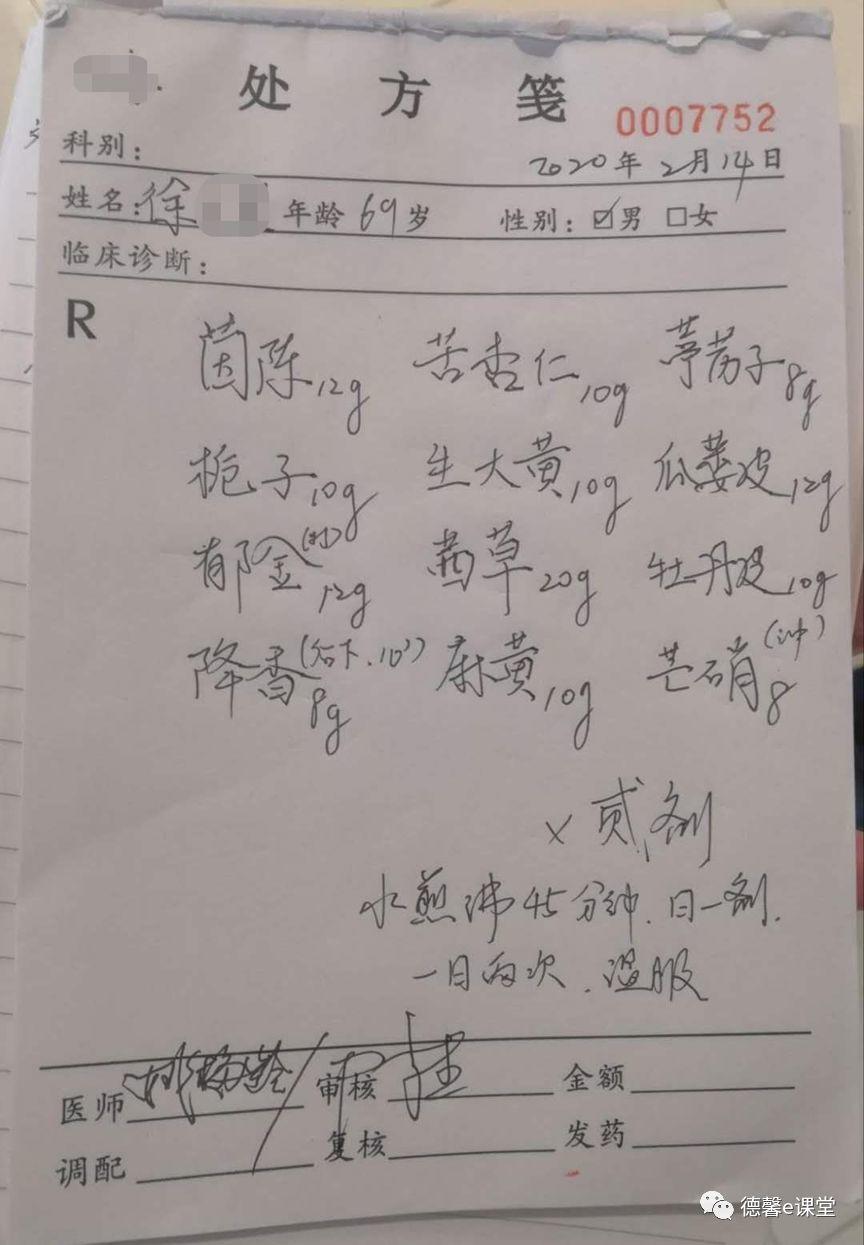 处方笺
0007752
科别：
2020年2月14日
姓名：徐 年龄69岁 性别：☑男 □女
临床诊断：
R
茵陈12g 苦杏仁10g 葶苈子8g
栀子10g 生大黄10g 瓜蒌皮12g
郁金12g 茜草20g 牡丹皮10g
降香(后下.10')8g 麻黄10g 芒硝(冲)8
×贰剂
水煎沸45分钟.日一剂.
一日两次.温服
医师 审核 金额
调配 复核 发药
德馨e课堂